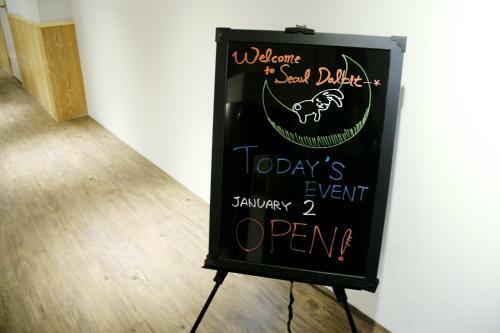 Welcome
to Seoul Dalbit
TODAY'S
EVENT
JANUARY 2
OPEN!